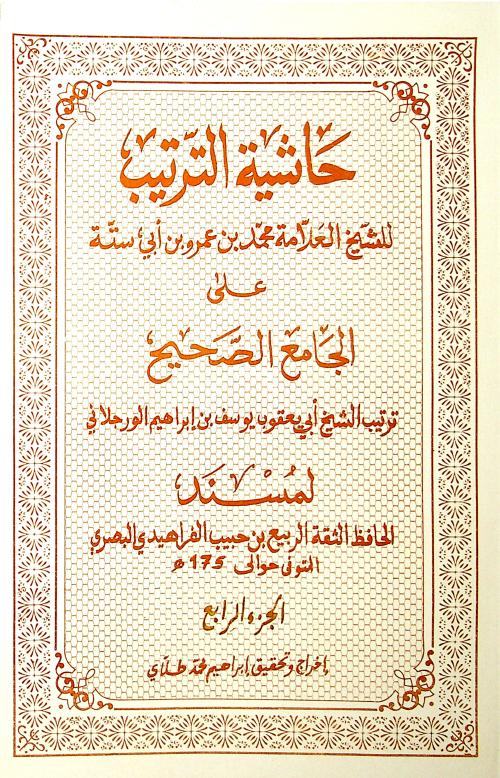 حاشية الترتيب
للشيخ العلامة محمد بن عمرو بن أبي ستة
على
الجامع الصحيح
ترتيب الشيخ أبي يعقوب يوسف بن إبراهيم الورجلاني
لمسند
الحافظ الثقة الربيع بن حبيب الفراهيدي البصري
المتوفى حوالى 175 ه
الجزء الرابع
إخراج وتحقيق إبراهيم محمد طلاي